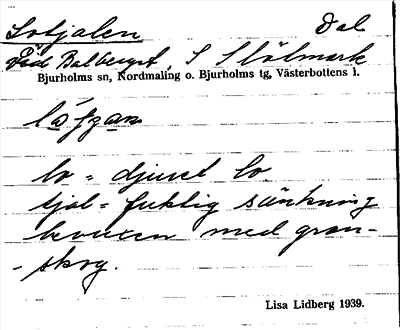 Lotjalen Dal
Vid Balberget, S Stölmark
Bjurholms sn, Nordmaling o. Bjurholms tg, Västerbottens l.
lo = djuret lo
tjal = fuktig sänkning
bevuxen med gran-
-skog.
Lisa Lidberg 1939.